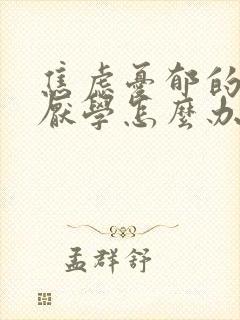 焦虑憂郁的
厭學怎麼办
孟群舒